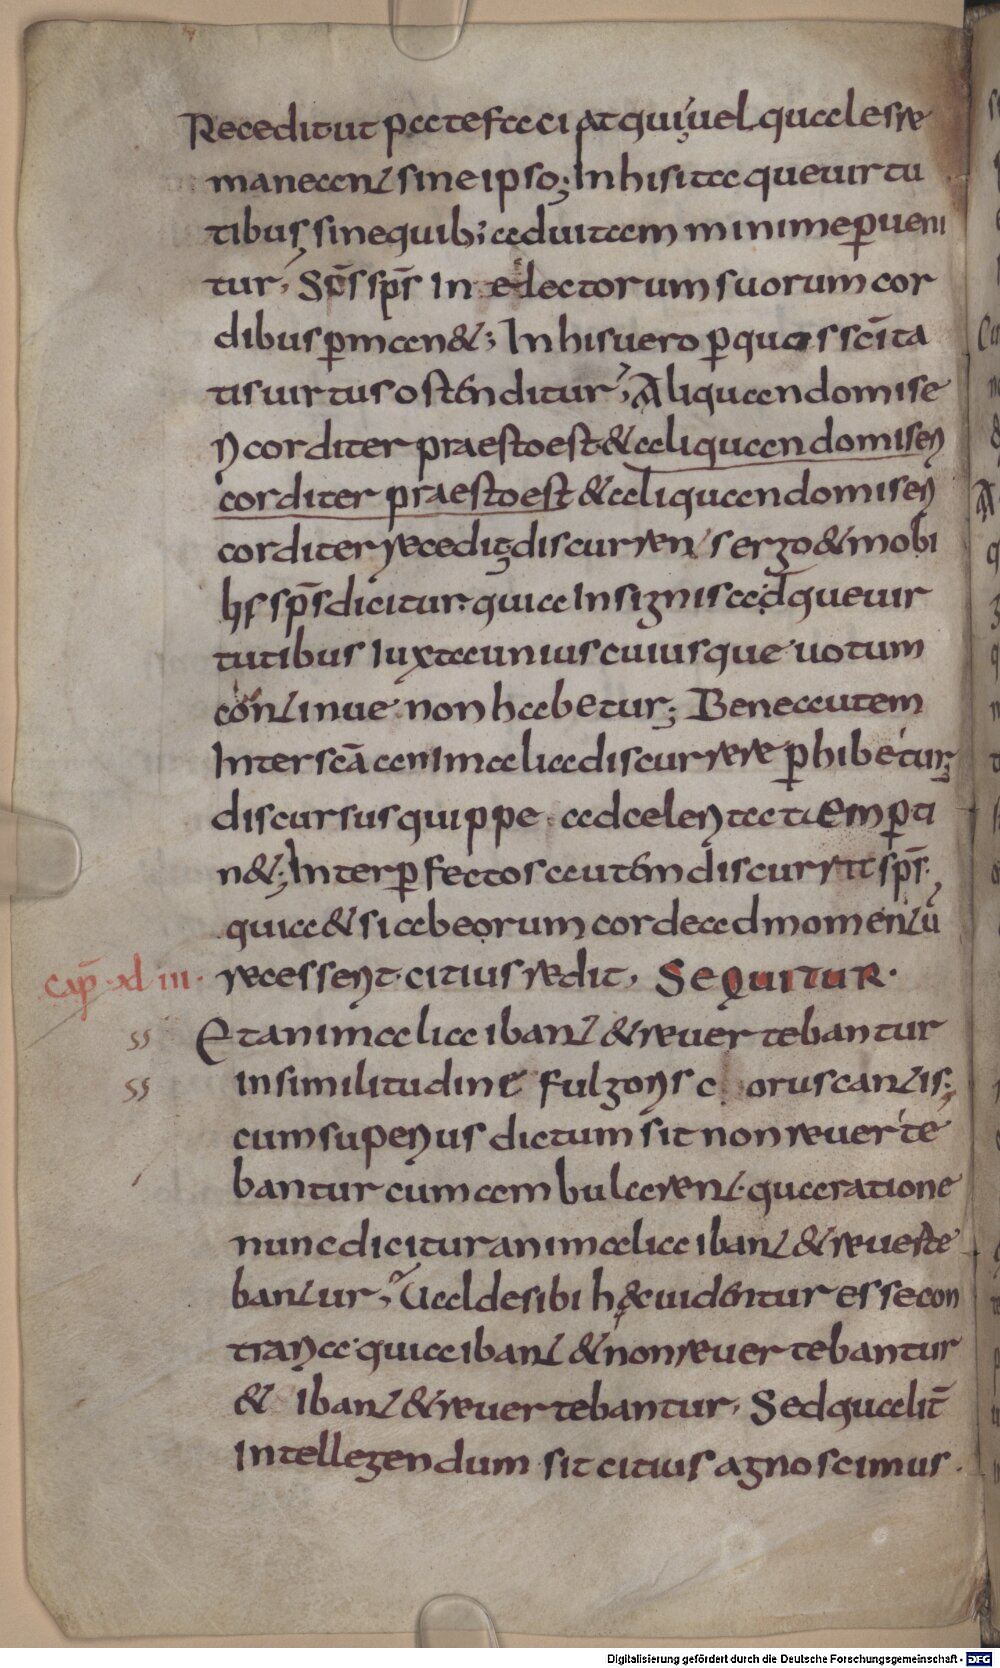 Recedit ut patefaciat qui uel quales re
maneant sine ipso; In his itaque uirtu
tibus sine quib; ad uitam minime perueni
tur, Sc̄s sp̄s in electorum suorum cor
dibus p̄man&; In his uero p̄ quas sc̄ita
tis uirtus ostenditur, Aliquando mise
ricorditer praesto est & aliquando miseri
corditer praesto est & aliquando miseri
corditer recedit; discurrens ergo & mobi
lis sp̄s dicitur quia in signis adque uir
tutibus iuxta uniuscuiusque uotum
continue non habetur; Bene autem
Inter sc̄a animalia discurrere p̄hibetur;
discursus quippe ad celeritatem p̄ti
n&; Inter p̄fectos autem discurrit sp̄s.
quia & si ab eorum corde ad momentū
recesserit citius redit, Sequitur.
Cap̄ xliii.
ss Et animalia ibant & reuertebantur
ss in similitudine fulgoris c oruscantis;
cum superius dictum sit non reuerte
bantur cum ambularent. qua ratione
nunc dicitur animalia ibant & reuerte
bantur, Ualde sibi hęc uidentur esse con
traria quia ibant & non reuertebantur
& ibant & reuertebantur, Sed qualit̄
intellegendum sit citius agnoscimus.
Digitalisierung gefördert durch die Deutsche Forschungsgemeinschaft - DFG